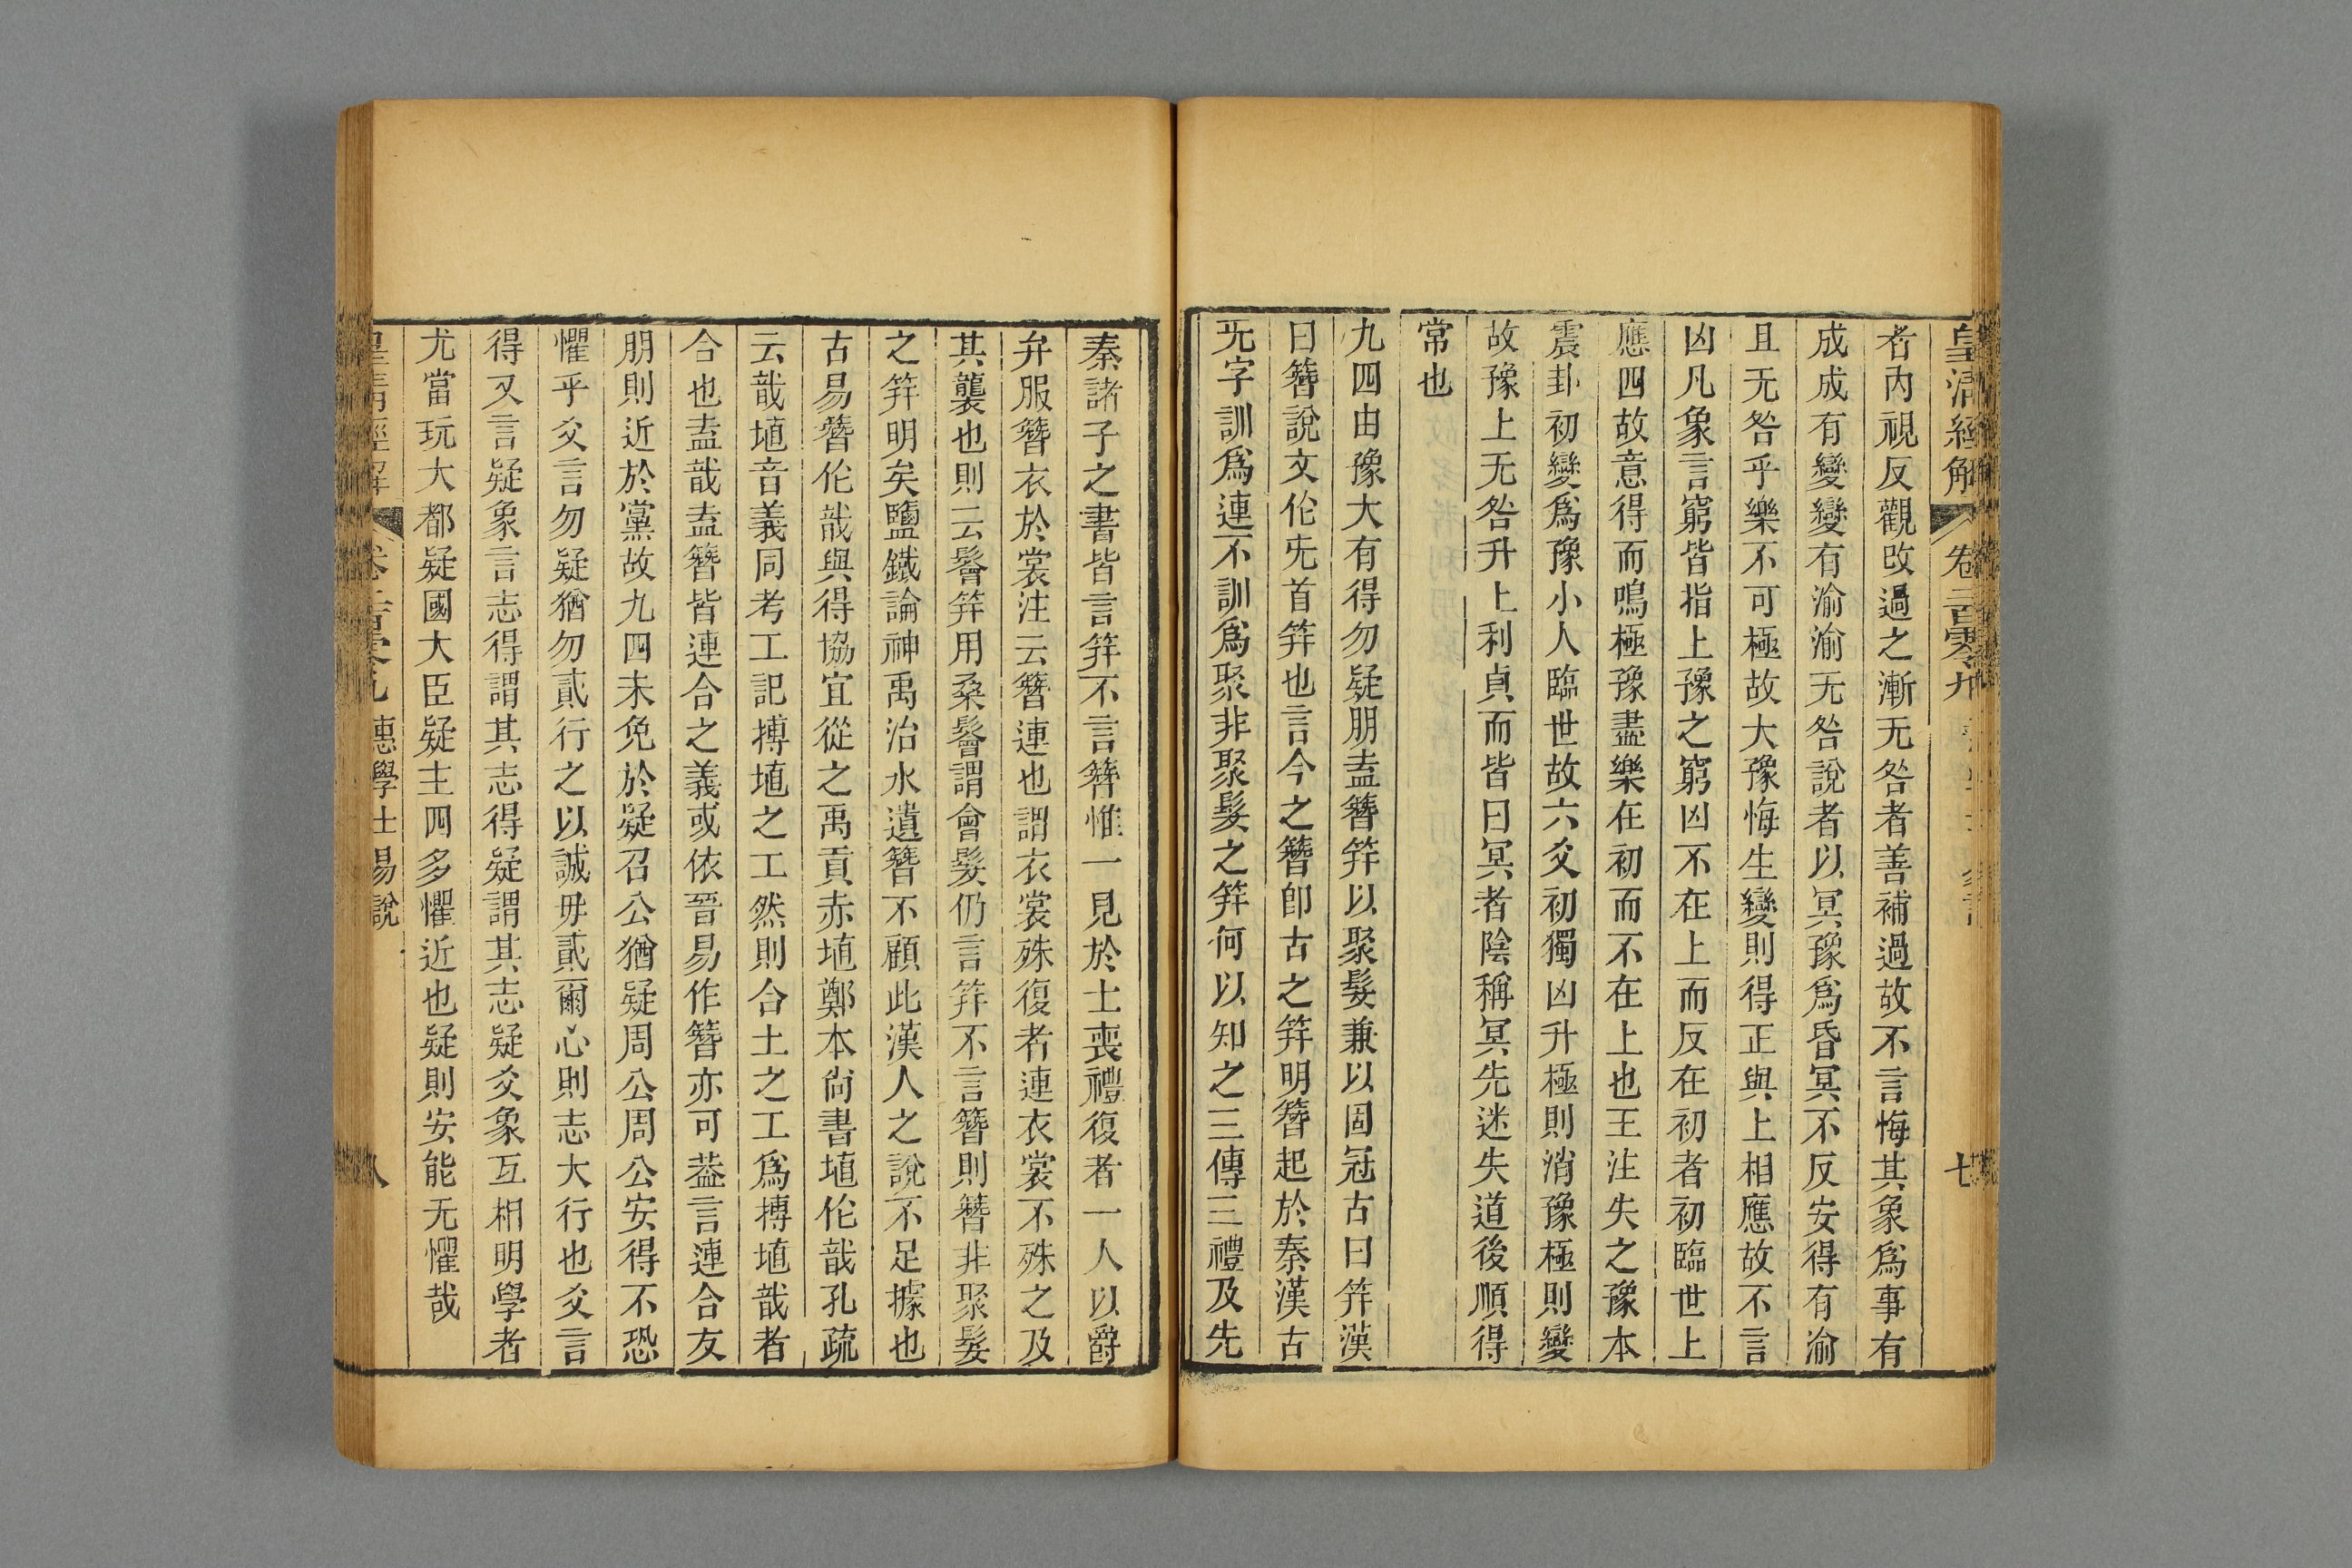 皇清經解 卷二百零九 七
者內視反觀改過之漸无咎者善補過故不言悔其象爲事有
成成有變變有渝渝无咎說者以冥豫爲昏冥不反安得有渝
且无咎乎樂不可極故大豫悔生變則得正與上相應故不言
凶凡象言窮皆指上豫之窮凶不在上而反在初者初臨世上
應四故意得而鳴極豫盡樂在初而不在上也王注失之豫本
震卦初變爲豫小人臨世故六爻初獨凶升極則消豫極則變
故豫上无咎升上利貞而皆曰冥者陰稱冥先迷失道後順得
常也
九四由豫大有得勿疑朋盍簪笄以聚髮兼以固冠古曰笄漢
曰簪說文作兂首笄也言今之簪卽古之笄明簪起於秦漢古
兂字訓爲連不訓爲聚非聚髮之笄何以知之三傳三禮及先
秦諸子之書皆言笄不言簪惟一見於士喪禮復者一人以爵
弁服簪衣於裳注云簪連也謂衣裳殊復者連衣裳不殊之及
其襲也則云鬠笄用桑鬠謂會髮仍言笄不言簪則簪非聚髮
之笄明矣鹽鐵論神禹治水遺簪不顧此漢人之說不足據也
古易簪作戠與得協宜從之禹貢赤埴鄭本尙書埴作戠孔疏
云戠埴音義同考工記搏埴之工然則合土之工爲搏埴戠者
合也盍戠盍簪皆連合之義或依晉易作簪亦可葢言連合友
朋則近於黨故九四未免於疑召公猶疑周公周公安得不恐
懼乎爻言勿疑猶勿貳行之以誠毋貳爾心則志大行也爻言
得又言疑象言志得謂其志得疑謂其志疑爻象互相明學者
尤當玩大都疑國大臣疑主四多懼近也疑則安能无懼哉
皇清經解 卷二百零九 惠學士易說 八